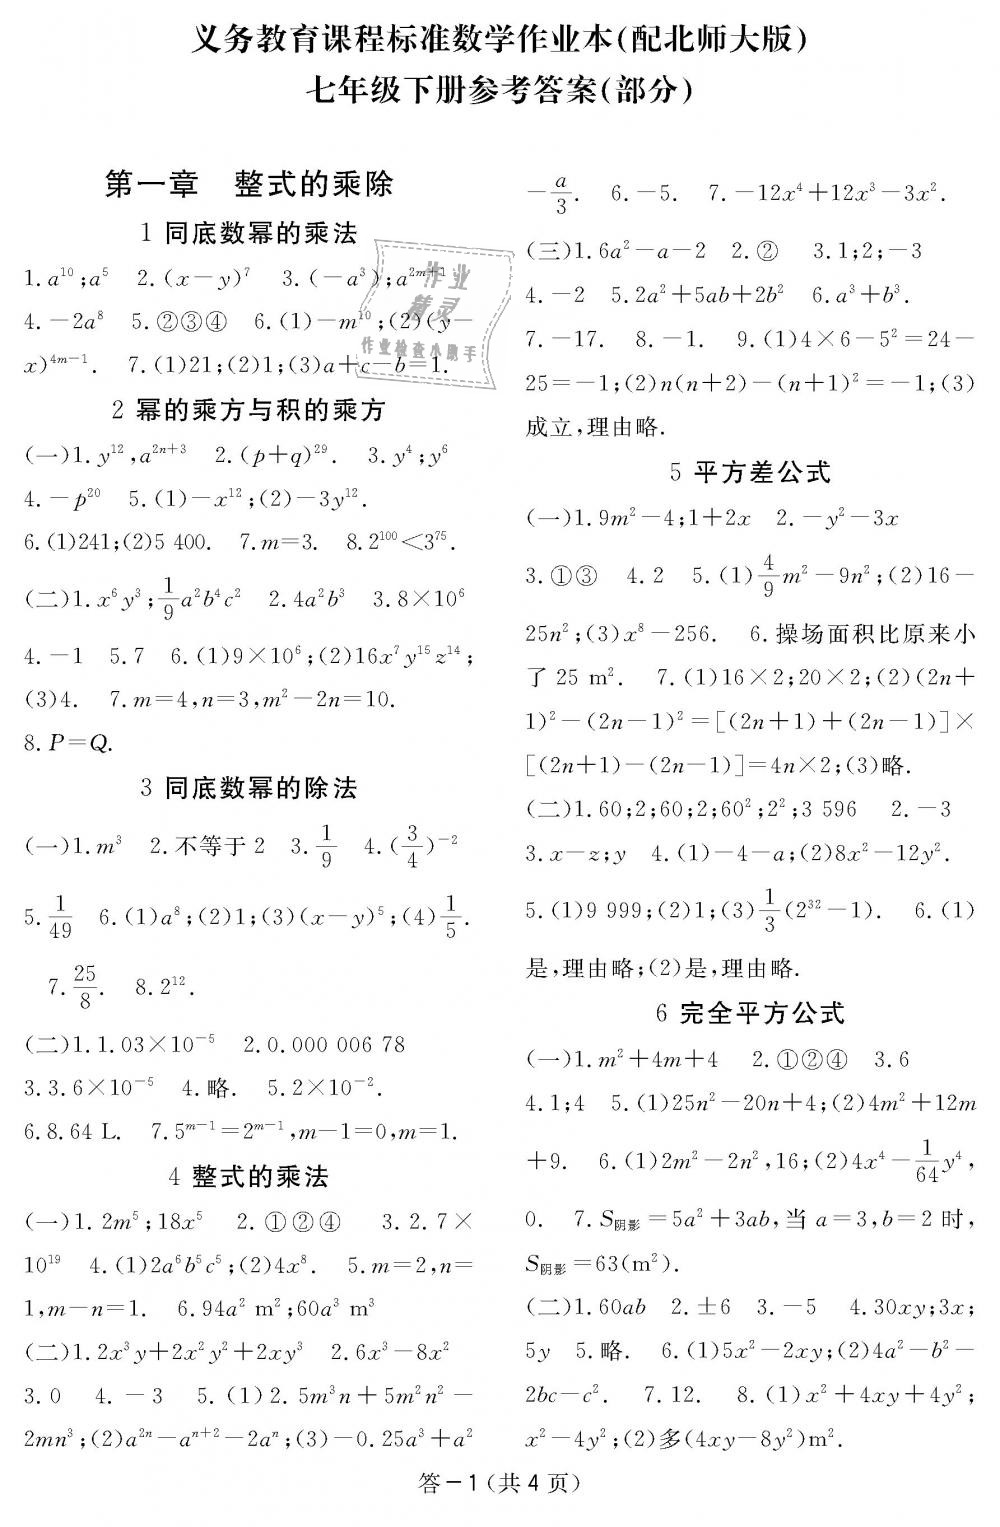 义务教育课程标准数学作业本(配北师大版)
七年级下册参考答案(部分)
第一章　整式的乘除
1 同底数幂的乘法
1.a¹⁰;a⁵　2.(x－y)⁷　3.(－a³);a²ᵐ⁺¹
4.－2a⁸　5.②③④　6.(1)－m¹⁰;(2)(y－
x)⁴ᵐ⁻¹.　7.(1)21;(2)1;(3)a＋c－b＝1.
作业
精灵
作业检查小助手
2 幂的乘方与积的乘方
(一)1.y¹²,a²ⁿ⁺³　2.(p＋q)²⁹.　3.y⁴;y⁶
4.－p²⁰　5.(1)－x¹²;(2)－3y¹².
6.(1)241;(2)5 400.　7.m＝3.　8.2¹⁰⁰＜3⁷⁵.
(二)1.x⁶y³;1/9a²b⁴c²　2.4a²b³　3.8×10⁶
4.－1　5.7　6.(1)9×10⁶;(2)16x⁷y¹⁵z¹⁴;
(3)4.　7.m＝4,n＝3,m²－2n＝10.
8.P＝Q.
3 同底数幂的除法
(一)1.m³　2.不等于2　3.1/9　4.(3/4)⁻²
5.1/49　6.(1)a⁸;(2)1;(3)(x－y)⁵;(4)1/5.
7.25/8.　8.2¹².
(二)1.1.03×10⁻⁵　2.0.000 006 78
3.3.6×10⁻⁵　4.略.　5.2×10⁻².
6.8.64 L.　7.5ᵐ⁻¹＝2ᵐ⁻¹,m－1＝0,m＝1.
4 整式的乘法
(一)1.2m⁵;18x⁵　2.①②④　3.2.7×
10¹⁹　4.(1)2a⁶b⁵c⁵;(2)4x⁸.　5.m＝2,n＝
1,m－n＝1.　6.94a² m²;60a³ m³
(二)1.2x³y＋2x²y²＋2xy³　2.6x³－8x²
3.0　4.－3　5.(1)2.5m³n＋5m²n²－
2mn³;(2)a²ⁿ－aⁿ⁺²－2aⁿ;(3)－0.25a³＋a²
－a/3.　6.－5.　7.－12x⁴＋12x³－3x².
(三)1.6a²－a－2　2.②　3.1;2;－3
4.－2　5.2a²＋5ab＋2b²　6.a³＋b³.
7.－17.　8.－1.　9.(1)4×6－5²＝24－
25＝－1;(2)n(n＋2)－(n＋1)²＝－1;(3)
成立,理由略.
5 平方差公式
(一)1.9m²－4;1＋2x　2.－y²－3x
3.①③　4.2　5.(1)4/9m²－9n²;(2)16－
25n²;(3)x⁸－256.　6.操场面积比原来小
了25 m².　7.(1)16×2;20×2;(2)(2n＋
1)²－(2n－1)²＝[(2n＋1)＋(2n－1)]×
[(2n＋1)－(2n－1)]＝4n×2;(3)略.
(二)1.60;2;60;2;60²;2²;3 596　2.－3
3.x－z;y　4.(1)－4－a;(2)8x²－12y².
5.(1)9 999;(2)1;(3)1/3(2³²－1).　6.(1)
是,理由略;(2)是,理由略.
6 完全平方公式
(一)1.m²＋4m＋4　2.①②④　3.6
4.1;4　5.(1)25n²－20n＋4;(2)4m²＋12m
＋9.　6.(1)2m²－2n²,16;(2)4x⁴－1/64y⁴,
0.　7.S阴影＝5a²＋3ab,当a＝3,b＝2时,
S阴影＝63(m²).
(二)1.60ab　2.±6　3.－5　4.30xy;3x;
5y　5.略.　6.(1)5x²－2xy;(2)4a²－b²－
2bc－c².　7.12.　8.(1)x²＋4xy＋4y²;
x²－4y²;(2)多(4xy－8y²)m².
答－1(共4页)